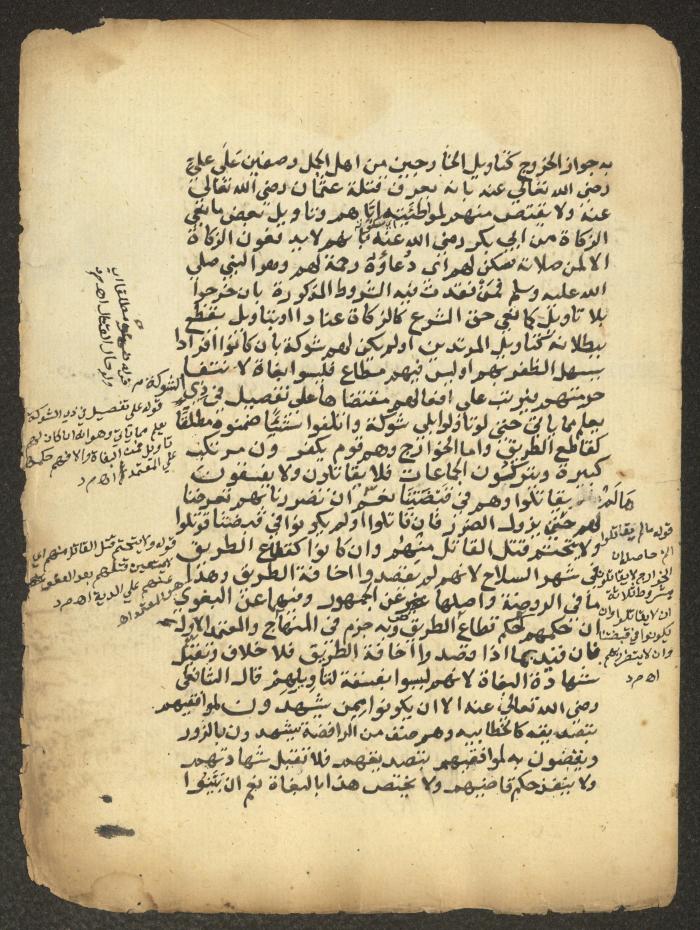 به جواز الخروج كتاويل الخارجين من اهل الجمل وصفين على علي
رضى الله تعالى عنه بانه يعرف قتلة عثمان رضى الله تعالى
عنه ولا يقتص منهم لمواطئته اياهم وتاويل بعض مانعى
الزكاة من ابي بكر رضى الله عنه بانهم لا يدفعون الزكاة
الا لمن صلاته سكن لهم اى دعاؤه رحمة لهم وهو النبي صلى
الله عليه وسلم فمن فقدت فيه الشروط المذكورة بان خرجوا
بلا تاويل كمانعى حق الشرع كالزكاة عنادا او بتاويل يقطع
ببطلانه كتاويل المرتدين او لم يكن لهم شوكة بان كانوا افرادا
يسهل الظفر بهم او ليس فيهم مطاع فليسوا بغاة لانتفا
حرمتهم فيترتب على افعالهم مقتضاها على تفصيل في ذي
الشوكة
يعلم مما ياتى حتى لو تاولوا بلا شوكة واتلفوا شيئا ضمنوه مطلقا
كقاطع الطريق واما الخوارج وهم قوم يكفرون مرتكب
كبيرة ويتركون الجماعات فلا يقاتلون ولا يفسقون
ما لم يقاتلوا وهم في قبضتنا نعم ان تضررنا بهم تعرضنا
لهم حتى يزول الضرر فان قاتلوا او لم يكونوا في قبضتنا قوتلوا
ولا يتحتم قتل القاتل منهم وان كانوا كقطاع الطريق
في شهر السلاح لانهم لم يقصدوا اخافة الطريق وهذا
ما في الروضة واصلها عن الجمهور وفيها عن البغوي
ان حكمهم حكم قطاع الطريق وبه جزم في المنهاج والمعتمد الاول
فان قيد بما اذا قصدوا اخافة الطريق فلا خلاف وتقبل
شهادة البغاة لانهم ليسوا بفسقة لتاويلهم قال الشافعى
رضى الله تعالى عنه الا ان يكونوا ممن يشهدون لموافقيهم
بتصديقه كالخطابيه وهم صنف من الرافضة يشهدون بالزور
ويقضون به لموافقيهم بتصديقهم فلا تقبل شهادتهم
ولا ينفذ حكم قاضيهم ولا يختص هذا بالبغاة نعم ان بينوا
قوله على تفصيل في ذي الشوكة
يعلم مما ياتى وهو انه ان كان لهم
تاويل فمن البغاة والا فهم حكمهم
على المعتمد اه م د
قوله ولا يتحتم قتل القاتل منهم اي
منهم على الدية اه م د
قوله ما لم يقاتلوا
الخ حاصله ان
الخوارج لا يقاتلون
بشروط ثلاثة
ان لا يقاتلوا وان
يكونوا في قبضتنا
وان لا يتضرر بهم
اه م د